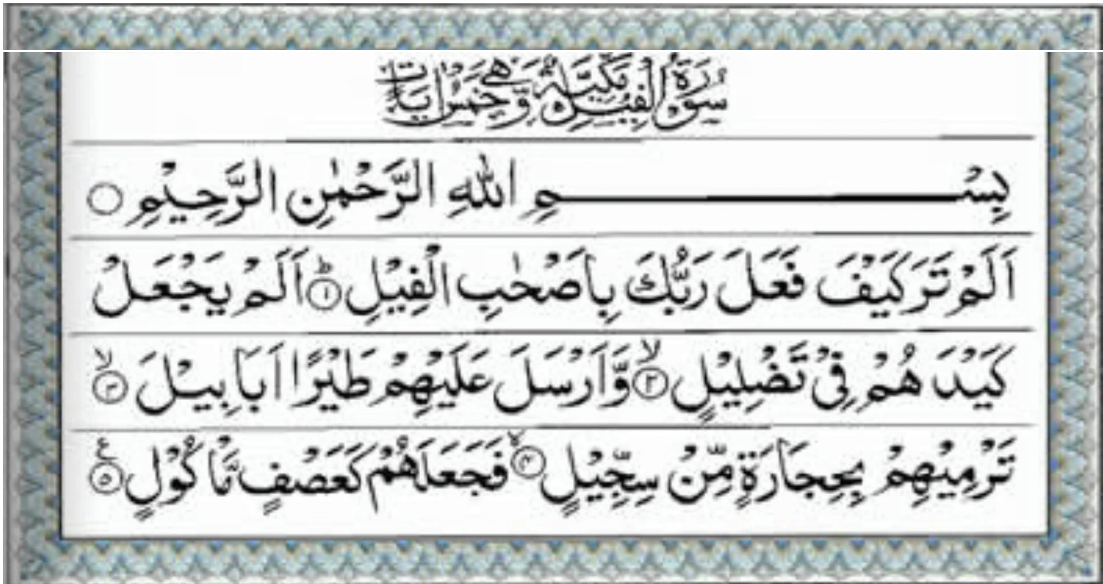 سُوْرَةُ الْفِيْلِ مَكِّيَّةٌ وَّهِيَ خَمْسُ اٰيَاتٍ
بِسْــــــــــــــــمِ اللهِ الرَّحْمٰنِ الرَّحِيْمِ ○
اَلَمْ تَرَ كَيْفَ فَعَلَ رَبُّكَ بِاَصْحٰبِ الْفِيْلِ ؕ﴿۱﴾ اَلَمْ يَجْعَلْ
كَيْدَ هُمْ فِيْ تَضْلِيْلٍ ۙ﴿۲﴾ وَّاَرْسَلَ عَلَيْهِمْ طَيْرًا اَبَابِيْلَ ۙ﴿۳﴾
تَرْمِيْهِمْ بِحِجَارَةٍ مِّنْ سِجِّيْلٍ ۙ﴿۴﴾ فَجَعَلَهُمْ كَعَصْفٍ مَّاْكُوْلٍ ﴿۵﴾ ع